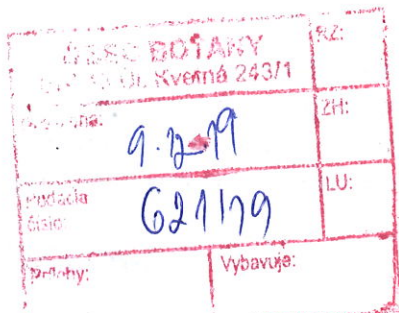 BOŤANY
Kvetná 243/1
RZ:
9.12.19
ZH:
číslo:
621/19
LU:
Prílohy:
Vybavuje: